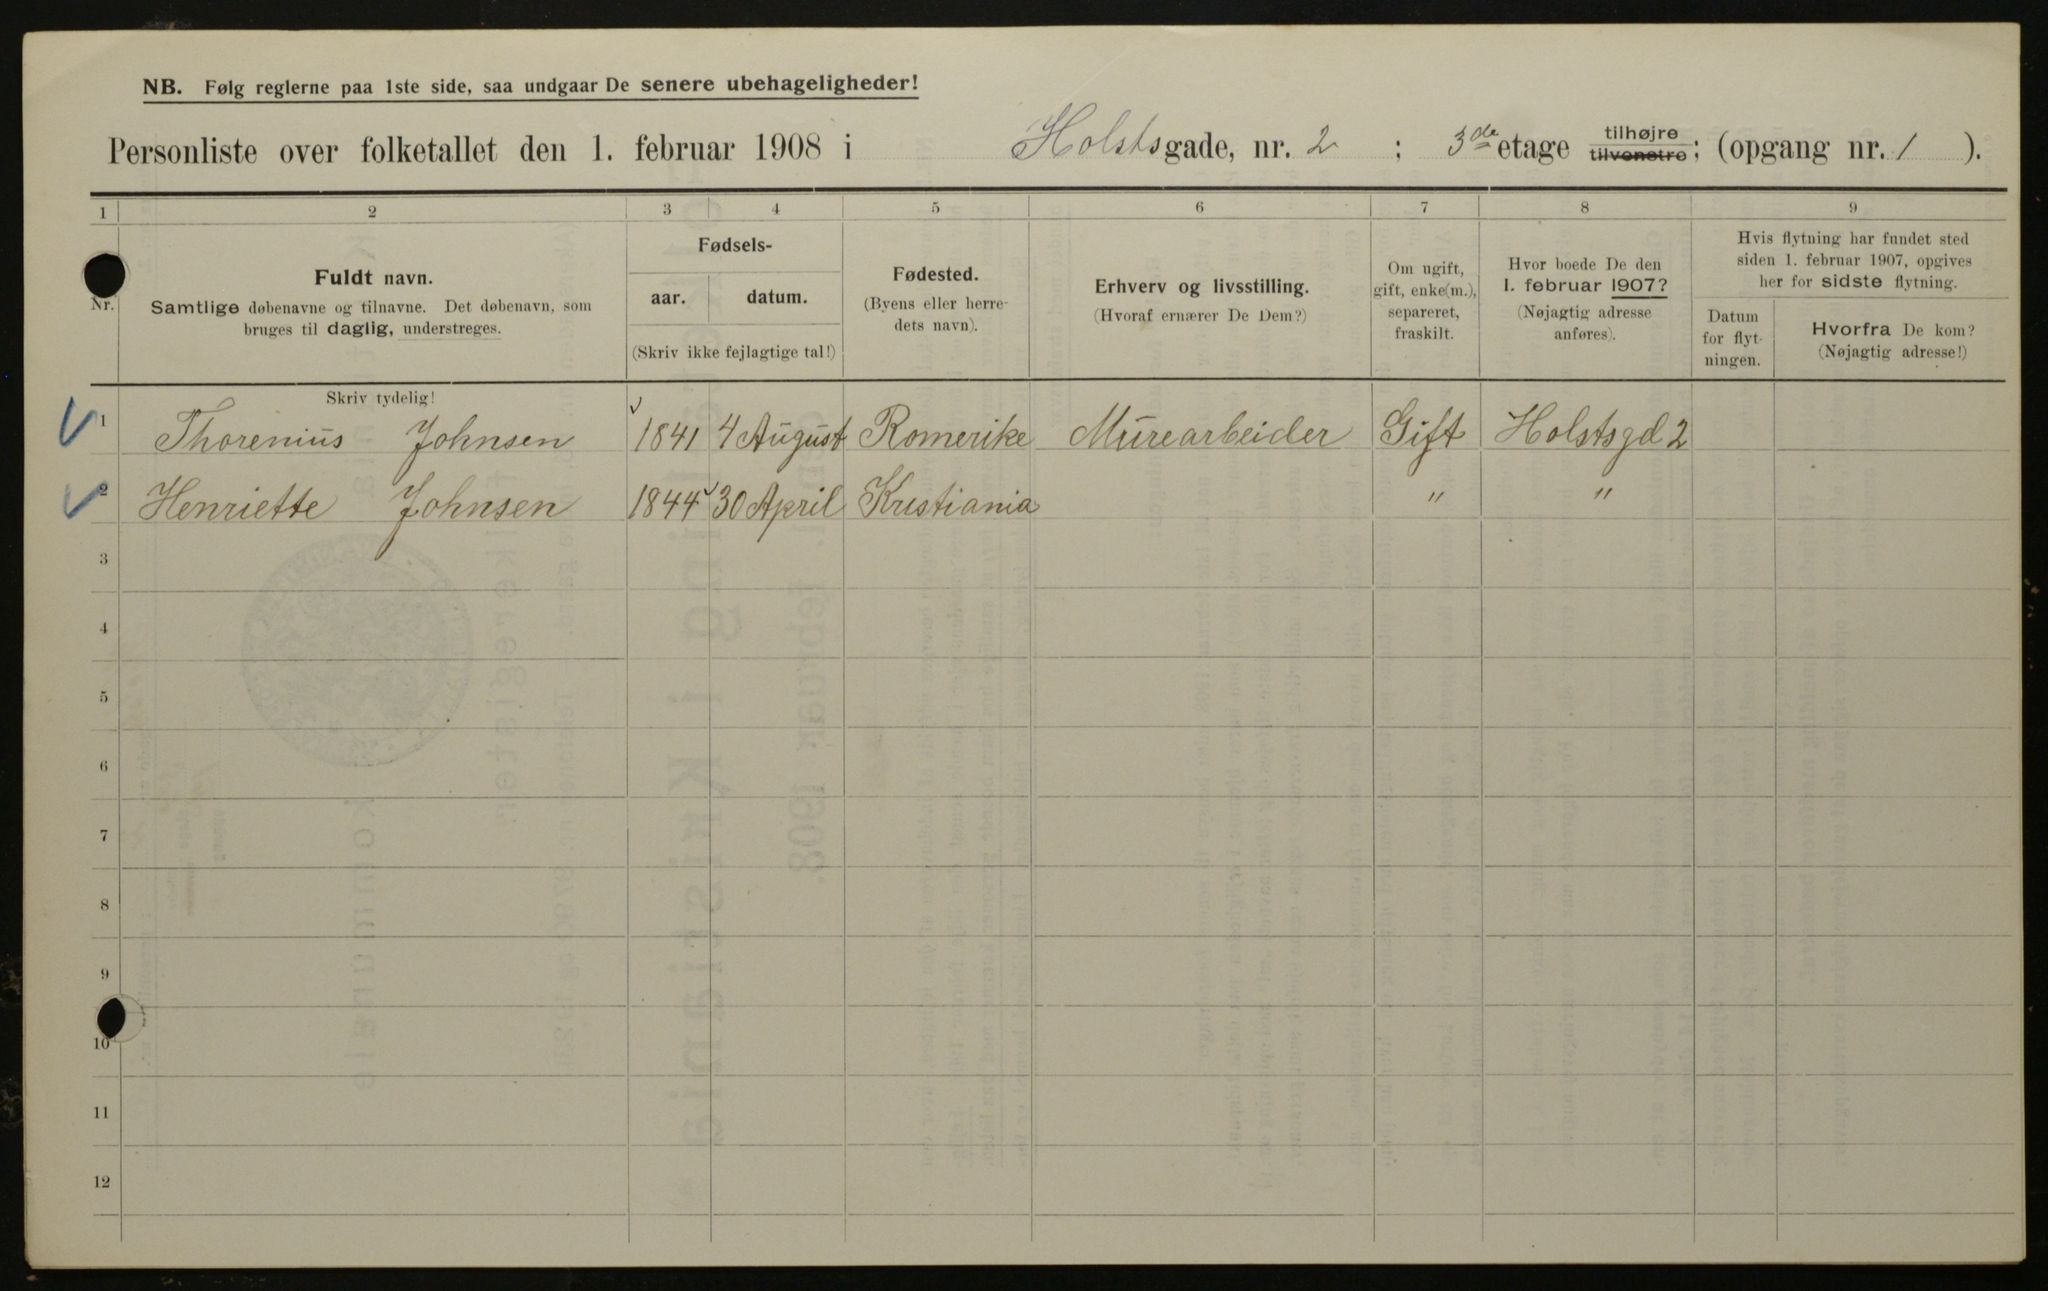 NB. Følg reglerne paa 1ste side, saa undgaar De senere ubehageligheder!
Personliste over folketallet den 1. februar 1908 i Holstsgade, nr. 2 ; 3de etage tilhøjre tilvenstre; (opgang nr. 1 ).
1 2 3 4 5 6 7 8 9
Nr.
Fuldt navn.
Samtlige døbenavne og tilnavne. Det døbenavn, som
bruges til daglig, understreges.
Fødsels-
aar. datum.
(Skriv ikke fejlagtige tal!)
Fødested.
(Byens eller herre-
dets navn).
Erhverv og livsstilling.
(Hvoraf ernærer De Dem?)
Om ugift,
gift, enke(m.),
separeret,
fraskilt.
Hvor boede De den
1. februar 1907?
(Nøjagtig adresse
anføres).
Hvis flytning har fundet sted
siden 1. februar 1907, opgives
her for sidste flytning.
Datum
for flyt-
ningen.
Hvorfra De kom?
(Nøjagtig adresse!)
Skriv tydelig!
1 Thorenius Johnsen 1841 4 August Romerike Murearbeider Gift Holstsgd 2
2 Henriette Johnsen 1844 30 April Kristiania " "
3
4
5
6
7
8
9
10
11
12